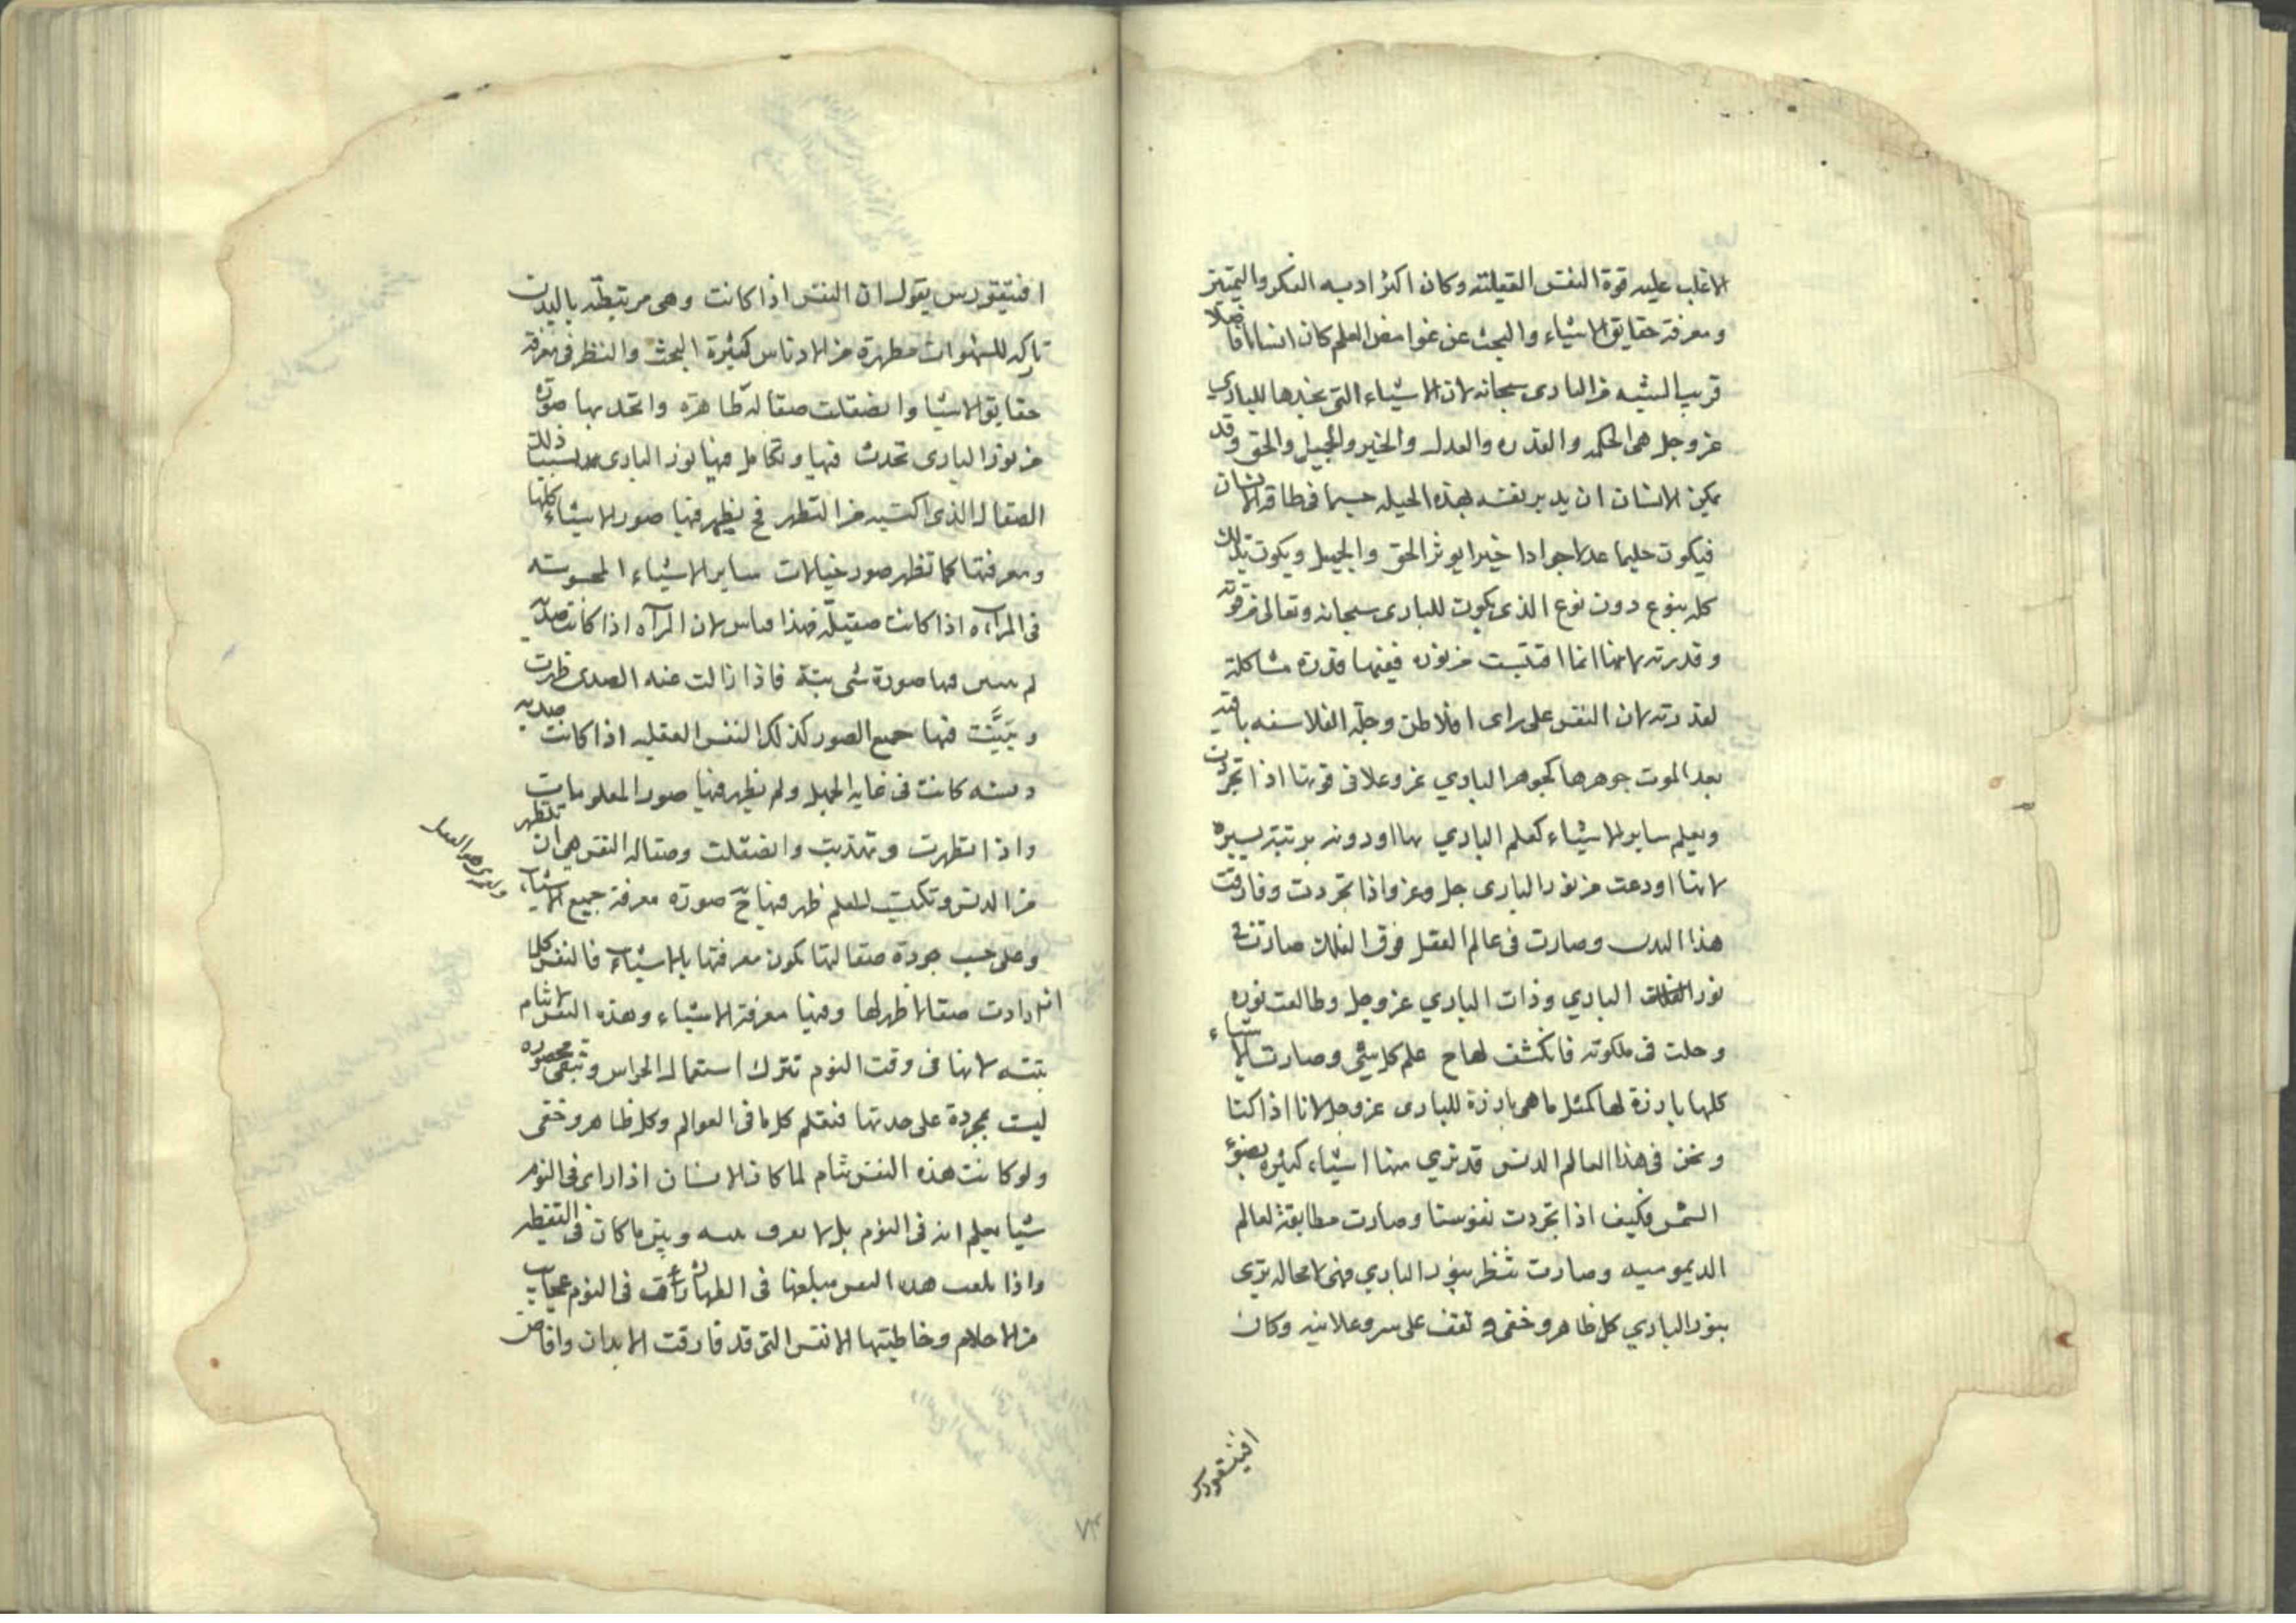 الاغلب عليه قوة النفس العقلية وكان اكثر ادبه الفكر والتمييز
ومعرفة حقايق الاشياء والبحث عن غوامض العلم كان انسانا فاضلا
قريب الشبه من الباري سبحانه لان الاشياء التي نجدها للباري
عز وجل هي الحكمه والقدره والعدل والخير والجميل والحق وقد
يمكن الانسان ان يدبر نفسه بهذه الحيله حسبما في طاقه الانسان
فيكون حليما عدلا جوادا خيرا يوثر الحق والجميل ويكون بذلك
كله بنوع دون نوع الذي يكون للباري سبحانه وتعالى من قوته
وقدرته لانها انما اقتبست من نوره ففيها قدرة مشاكلة
لقدرته لان النفس على راى افلاطن وجلة الفلاسفه باقيه
بعد الموت جوهرها كجوهر الباري عز وعلا في قوتها اذا تجردت
ويعلم ساير الاشياء كعلم الباري بها او دونه برتبة يسيره
لانها اودعت من نور الباري جل وعز واذا تجردت وفارقت
هذا البدن وصارت في عالم العقل فوق الفلك صارت في
نور الباري وذات الباري عز وجل وطالعت نوره
وحلت في ملكوته فانكشف لها ح علم كل شي وصارت الاشياء
كلها بارزة لها كمثل ما هي بارزة للباري عز وجل لانا اذا كنا
ونحن في هذا العالم الدنس قد نري منها اشياء كثيره بضوء
الشمس فكيف اذا تجردت نفوسنا وصارت مطابقة لعالم
الديموميه وصارت تنظر بنور الباري فهي لا محاله تري
بنور الباري كل ظاهر وخفي وتقف على سر وعلانيه وكان
افيتقورس
افيتقورس يقول ان النفس اذا كانت وهي مرتبطه بالبدن
تاركه للشهوات مطهرة من الادناس كثيرة البحث والنظر في معرفة
حقايق الاشيا وانصقلت صقاله ظاهره واتحد بها صورة
من نور الباري تحدث فيها وتكامل فيها نور الباري بسبب ذلك
الصقال الذي اكتسبه من التطهر فح يظهر فيها صور الاشياء كلها
ومعرفتها كما تظهر صور خيالات ساير الاشياء المحسوسه
في المرآه اذا كانت صقيله فهذا قياس لان المرآه اذا كانت صديه
لم يتبين فيها صورة شي بتة فاذا زالت عنه الصدى ظهرت
وتبينت فيها جميع الصور كذلك النفس العقليه اذا كانت صديه
دنسه كانت في غايه الجهل ولم يظهر فيها صور المعلومات
واذا تطهرت وتهذبت وانصقلت وصقاله النفس هي ان تتطهر
من الدنس وتكتسب العلم ظهر فيها ح صورة معرفة جميع الاشياء
وعلى حسب جودة صقالتها تكون معرفتها بالاشياء فالنفس كلما
ازدادت صقالا ظهر لها وفيها معرفة الاشياء وهذه النفس لا تنام
بتته لانها في وقت النوم تترك استعمال الحواس وتبقى محصوره
ليست بمجردة على حدتها فتعلم كل ما في العوالم وكل ظاهر وخفى
ولو كانت هذه النفس تنام لما كان الانسان اذا راى في النوم
شيا يعلم انه في النوم بل لا يعرف بينه وبين ما كان في التيقظ
واذا بلغت هذه النفس مبلغها في الطهاره رأت في النوم عجايب
من الاحلام وخاطبتها الانفس التي قد فارقت الابدان وافاض
٧٣